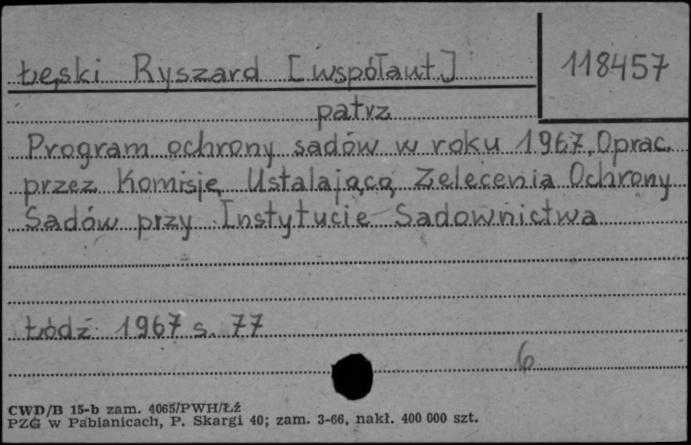 Łęski Ryszard [współaut.] 118457
patrz
Program ochrony sadów w roku 1967. Oprac.
przez Komisję Ustalającą Zelecenia Ochrony
Sadów przy Instytucie Sadownictwa
Łódź 1967 s. 77
6
CWD/B 15-b zam. 4065/PWH/Łź
PZG w Pabianicach, P. Skargi 40; zam. 3-66, nakł. 400 000 szt.